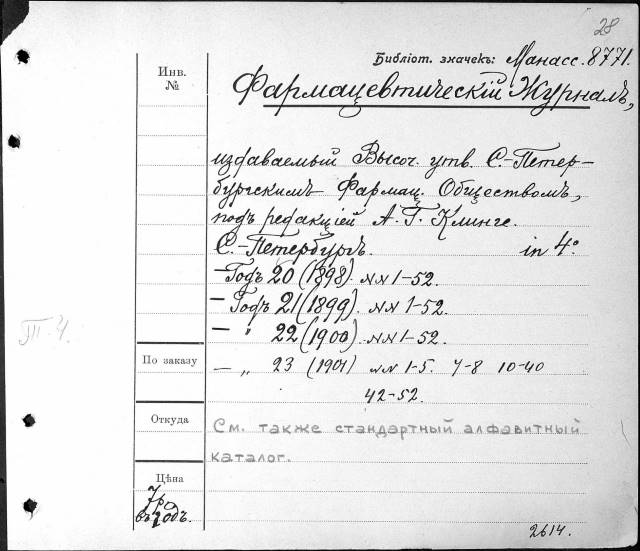 28
Библіот. значекъ: Манасс. 8771.
Инв.
№
Фармацевтическій Журналъ,
издаваемый Высоч. утв. С.-Петер-
бургскимъ Фармац. Обществомъ,
подъ редакціей А. Г. Клинге.
С.-Петербургъ. in 4°
- Годъ 20 (1898). NN 1-52.
- Годъ 21 (1899). NN 1-52.
- " 22 (1900). NN 1-52.
- „ 23 (1901) NN 1-5. 7-8 10-40
42-52.
По заказу
Откуда
См. также стандартный алфавитный
каталог.
Цѣна
7 р.
въ годъ.
2614.